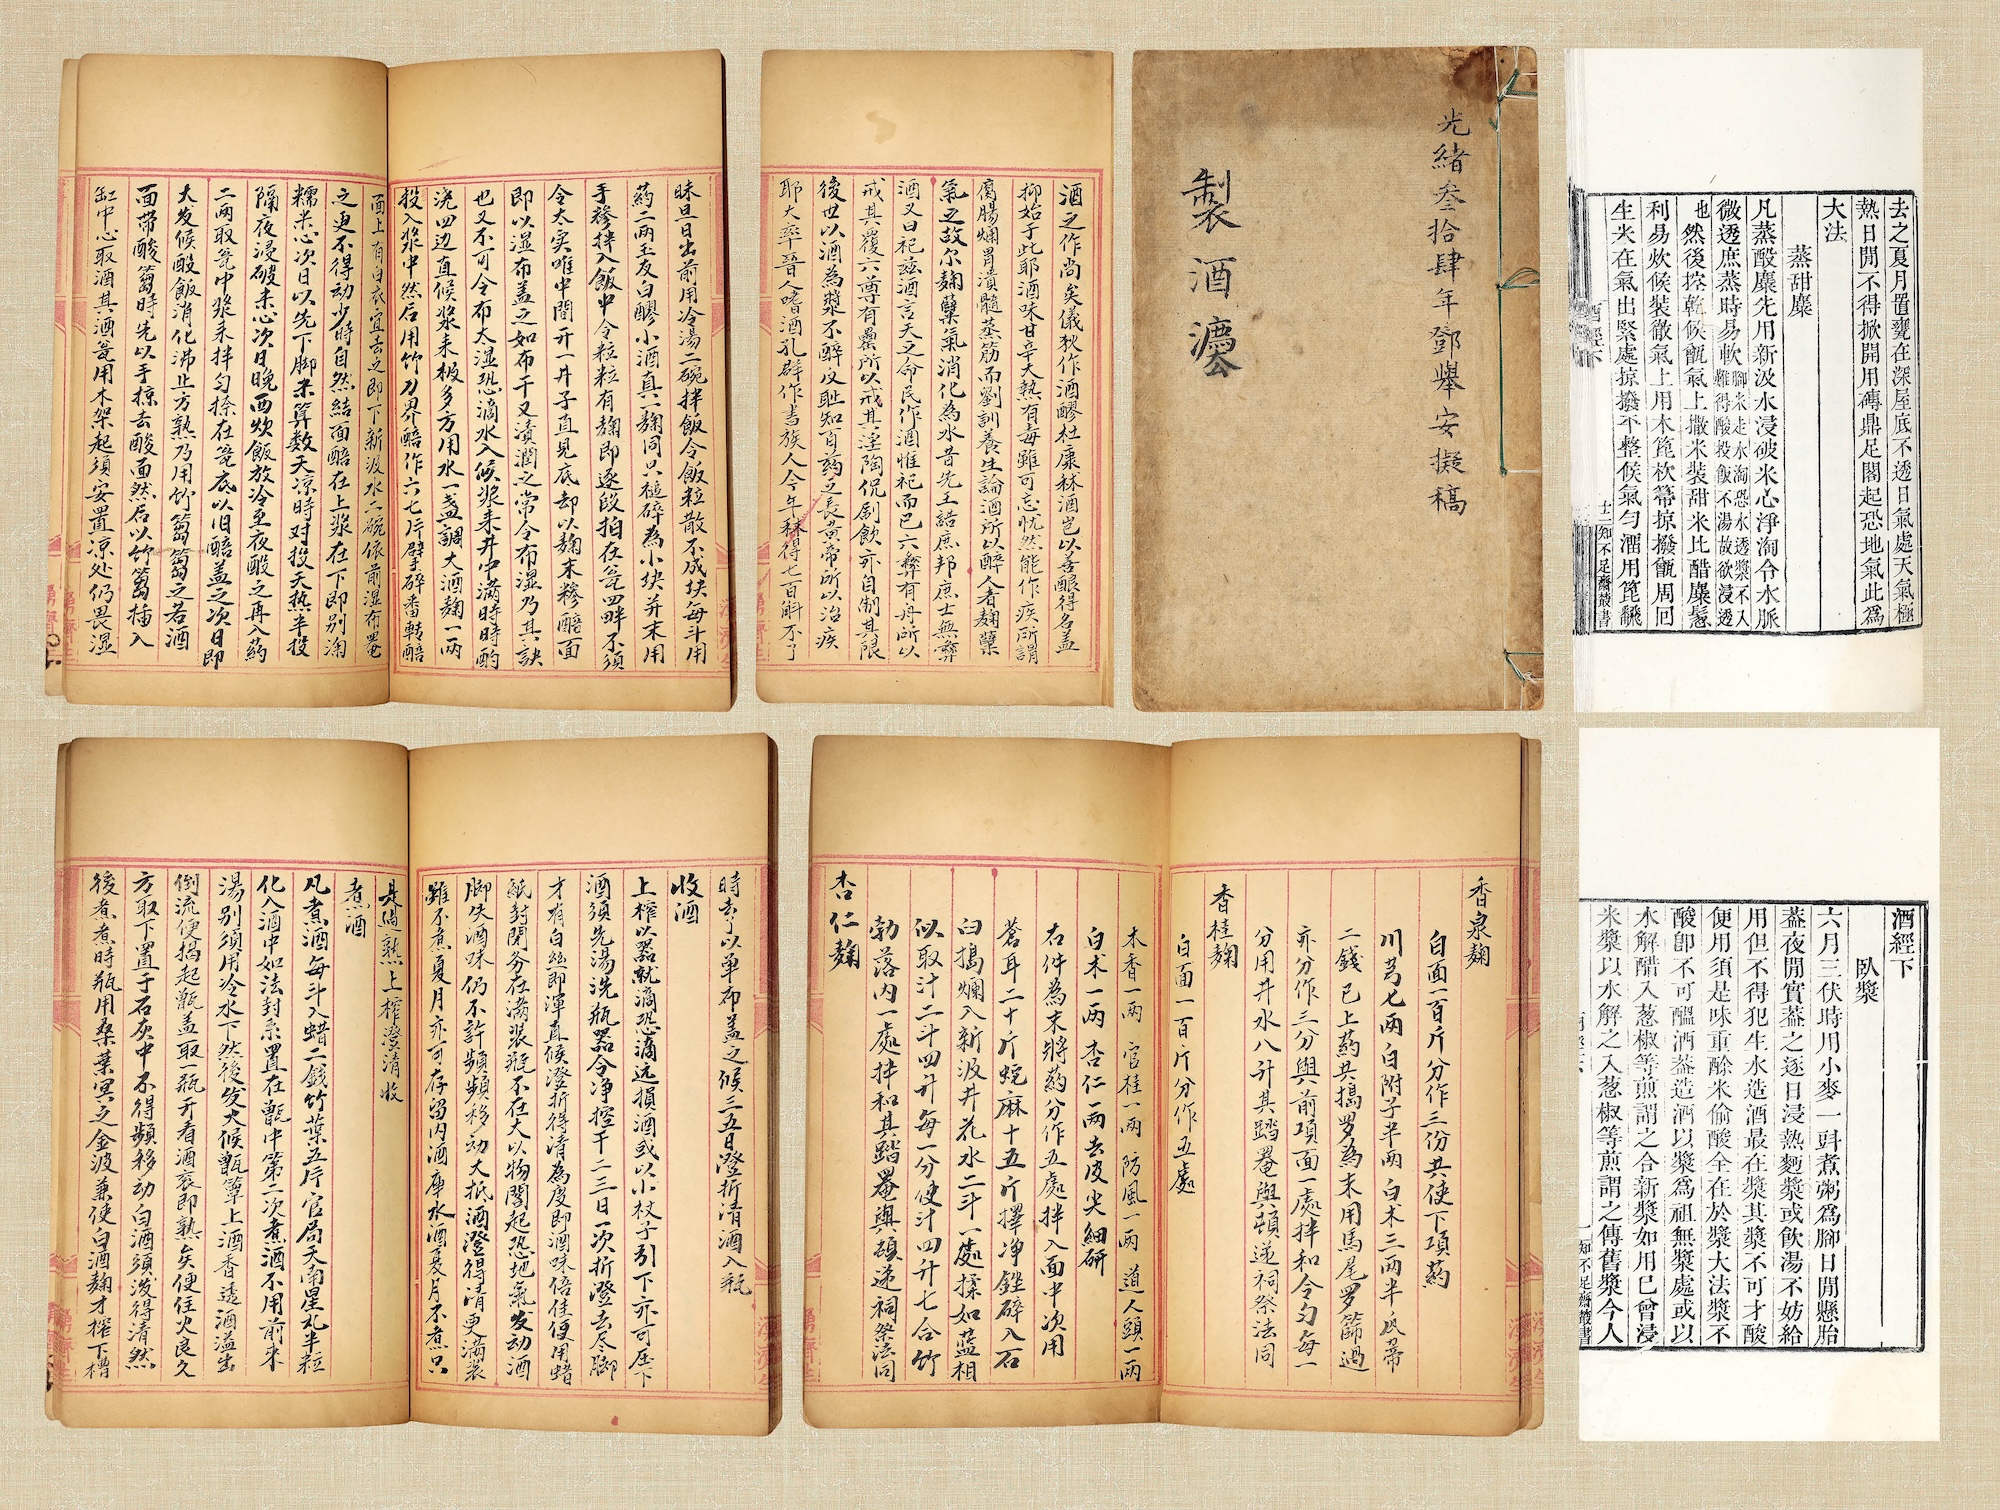 去之夏月置甕在深屋底不透日氣處天氣極
熱日閒不得掀開用磚鼎足閣起恐地氣此爲
大法
蒸甜麋
凡蒸酘麋先用新汲水浸破米心淨淘令水脈
微透庶蒸時易軟
腳米走水淘恐水透漿不入
難得酸投飯不湯故欲浸透
也
然後控乾候甑氣上撒米裝甜米比醋麋鬆
利易炊候裝徹氣上用木篦杴箒掠撥甑周回
生米在氣出緊處掠撥平整候氣勻溜用篦翻
酒經下
十二
知不足齋叢書
光緒叁拾肆年鄧舉安擬稿
製酒灋
酒之作尚矣儀狄作酒醪杜康秫酒豈以善釀得名蓋
抑始于此耶酒味甘辛大熱有毒雖可忘忧然能作疾所謂
腐腸爛胃潰髓蒸筋而劉訓養生論酒所以醉人者麹櫱
氣之故尔麹櫱氣消化為水昔先王誥庶邦庶士無彝
酒又曰祀兹酒言天之命民作酒惟祀而已六彝有舟所以
戒其覆六尊有罍所以戒其淫陶侃劇飲亦自制其限
後世以酒為漿不醉反耻知百葯之長黄帝所以治疾
耶大率晉人嗜酒孔群作書族人今年秫得七百斛不了
昧旦日出前用冷湯二碗拌飯令飯粒散不成块每斗用
葯二兩玉友白醪小酒真一麹同只槌碎為小块并末用
手糝拌入飯中令粒粒有麹即逐段拍在瓮四畔不須
令太实唯中間开一井子直見底却以麹末糝醅面
即以湿布蓋之如布干又漬潤之常令布湿乃其訣
也又不可令布太湿恐滴水入候浆来井中满時時酌
浇四边直候浆来极多方用水一盏調大酒麹一兩
投入浆中然后用竹刀界醅作六七片擘碎番轉醅
面上有白衣宜去之即下新汲水二碗依前湿布罨
之更不得动少時自然結面醅在上浆在下即别淘
糯米心次日以先下脚米算数天凉時对投天热半投
隔夜浸破米心次日晚西炊飯放冷至夜酘之再入葯
二兩取瓮中浆来拌匀捺在瓮底以旧醅盖之次日即
大发候酘飯消化沸止方熟乃用竹篘篘之若酒
面带酸篘時先以手掠去酸面然后以竹篘插入
缸中心取酒其酒瓮用木架起須安置凉处仍畏湿
酒經下
臥漿
六月三伏時用小麥一㪷煮粥爲腳日閒懸胎
葢夜閒實葢之逐日浸熱麪漿或飲湯不妨給
用但不得犯生水造酒最在漿其漿不可才酸
便用須是味重酴米偷酸全在於漿大法漿不
酸卽不可醞酒葢造酒以漿爲祖無漿處或以
水解醋入葱椒等煎謂之合新漿如用巳曾浸
米漿以水解之入葱椒等煎謂之傳舊漿今人
一
知不足齋叢書
香泉麹
白面一百斤分作三份共使下項葯
川芎七兩白附子半兩白术三兩半瓜蒂
二錢已上葯共搗罗為末用馬尾罗篩過
亦分作三分與前項面一處拌和令匀每一
分用井水八升其踏罨與頓递祠祭法同
香桂麹
白面一百斤分作五處
木香一兩 官桂一兩 防風一兩 道人頭一兩
白术一兩杏仁一兩去皮尖細研
右件為末將葯分作五處拌入面中次用
蒼耳二十斤蛇麻十五斤擇净銼碎入石
臼搗爛入新汲井花水二斗一處揉如蓝相
似取汁二斗四升每一分使汁四升七合竹
勃落内一處拌和其踏罨與頓递祠祭法同
杏仁麹
時去了以单布盖之候三五日澄折清酒入瓶
收酒
上榨以器就滴恐滴远損酒或以小杖子引下亦可压下
酒須先湯洗瓶器令净控干二三日一次折澄去尽脚
才有白丝即渾直候澄折得清為度即酒味倍佳便用蜡
紙封閉务在满装瓶不在大以物閣起恐地氣发动酒
脚失酒味仍不許頻頻移动大抵酒澄得清更满装
雖不煮夏月亦可存留内酒庫水酒夏月不煮只
是過熟上榨澄清收
煮酒
凡煮酒每斗入蜡二錢竹葉五片官局天南星丸半粒
化入酒中如法封系置在甑中第二次煮酒不用前来
湯别須用冷水下然後发火候甑箄上酒香透酒溢出
倒流便揭起甑盖取一瓶开看酒衮即熟矣便住火良久
方取下置于石灰中不得頻移动白酒須泼得清然
後煮煮時瓶用桑葉冥之金波兼使白酒麹才榨下槽